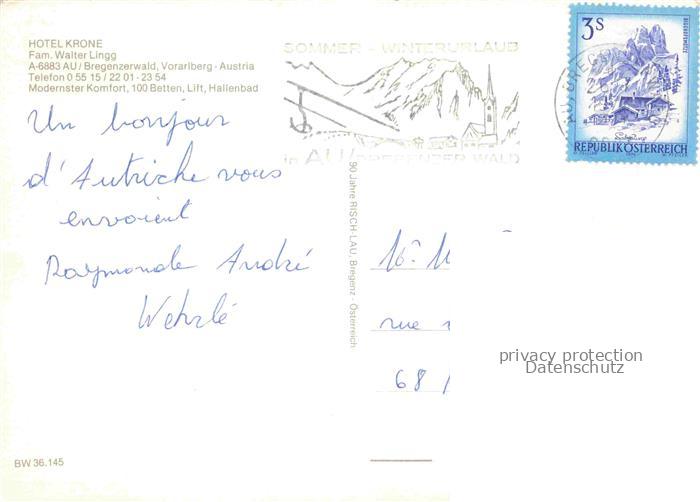 HOTEL KRONE
Fam. Walter Lingg
A-6883 AU / Bregenzerwald, Vorarlberg - Austria
Telefon 0 55 15 / 22 01 · 23 54
Modernster Komfort, 100 Betten, Lift, Hallenbad
SOMMER - WINTERURLAUB
in AU/BREGENZER WALD
3S
REPUBLIK ÖSTERREICH
Un bonjour
d'Autriche vous
envoient
Raymonde André
Wehrlé
90 Jahre RISCH-LAU, Bregenz - Österreich
rue
68
privacy protection
Datenschutz
BW 36.145